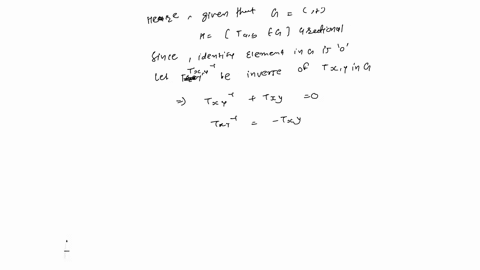 Here, given that G = (,+)
H = { Ta,b ∈ G} a rational
Since, identity element in G is '0'
Let Tx,y⁻¹ be inverse of Tx,y in G
⇒ Txy⁻¹ + Txy = 0
Txy⁻¹ = -Txy